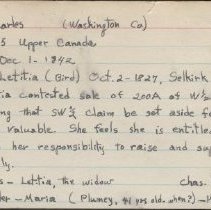 arles (Washington Co)
5 Upper Canada
Dec 1 - 1842
Letitia (Bird) Oct. 2-1827, Selkirk
tia contested sale of 200A of W½
ing that SW¼ claim be set aside fo
valuable. She feels she is entitle
her responsibility to raise and sup
ly.
s - Lettia, the widow chas.
er - Maria (Plumey, 41 yrs old. when?) -